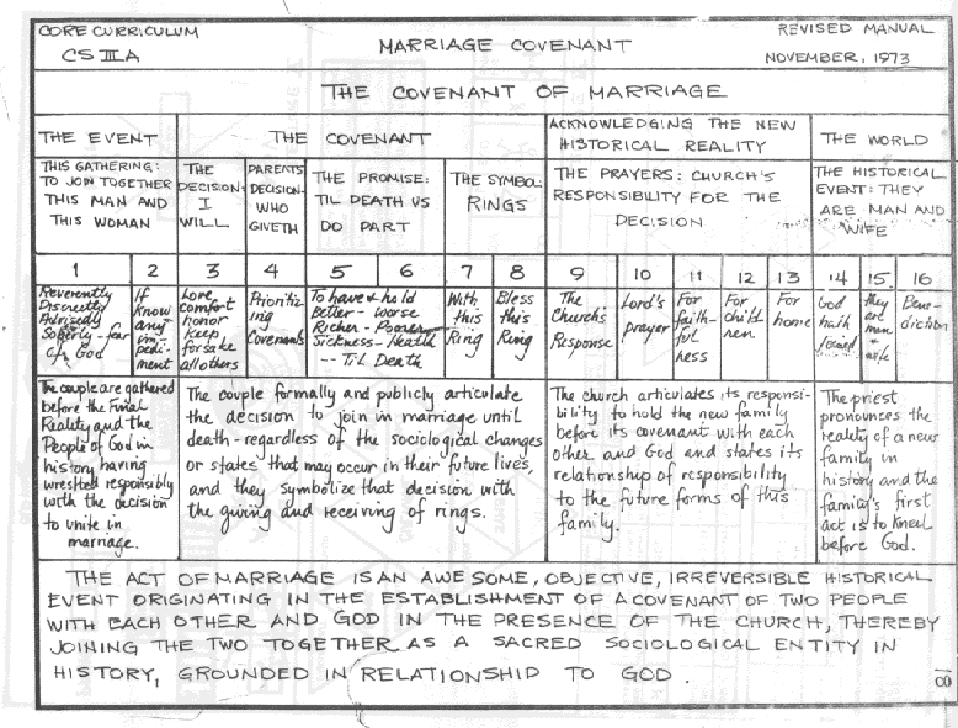 CORE CURRICULUM
CS IIIA
MARRIAGE COVENANT
REVISED MANUAL
NOVEMBER, 1973
THE COVENANT OF MARRIAGE
THE EVENT
THE COVENANT
ACKNOWLEDGING THE NEW
HISTORICAL REALITY
THE WORLD
THIS GATHERING:
TO JOIN TOGETHER
THIS MAN AND
THIS WOMAN
THE
DECISION-
I
WILL
PARENTS
DECISION-
WHO
GIVETH
THE PROMISE:
TIL DEATH US
DO PART
THE SYMBOL:
RINGS
THE PRAYERS: CHURCH'S
RESPONSIBILITY FOR THE
DECISION
THE HISTORICAL
EVENT: THEY
ARE MAN AND
WIFE
1 2 3 4 5 6 7 8 9 10 11 12 13 14 15 16
Reverently
Discreetly
Advisedly
Soberly - fear
of God
If
know
any
im-
pedi-
ment
Love
comfort
honor
keep,
forsake
all others
Prioritiz
ing
Covenants
To have & hold
Better - worse
Richer - Poorer
Sickness - Health
-- Til Death
With
this
Ring
Bless
this
Ring
The
Church's
Response
Lord's
prayer
For
faith-
ful
ness
For
child
ren
For
home
God
hath
joined
they
are
man
&
wife
Bene-
diction
The couple are gathered
before the Final
Reality and the
People of God in
history having
wrestled responsibly
with the decision
to unite in
marriage.
The couple formally and publicly articulate
the decision to join in marriage until
death - regardless of the sociological changes
or states that may occur in their future lives,
and they symbolize that decision with
the giving and receiving of rings.
The church articulates its responsi-
bility to hold the new family
before its covenant with each
other and God and states its
relationship of responsibility
to the future forms of this
family.
The priest
pronounces the
reality of a new
family in
history and the
family's first
act is to kneel
before God.
THE ACT OF MARRIAGE IS AN AWESOME, OBJECTIVE, IRREVERSIBLE HISTORICAL
EVENT ORIGINATING IN THE ESTABLISHMENT OF A COVENANT OF TWO PEOPLE
WITH EACH OTHER AND GOD IN THE PRESENCE OF THE CHURCH, THEREBY
JOINING THE TWO TOGETHER AS A SACRED SOCIOLOGICAL ENTITY IN
HISTORY, GROUNDED IN RELATIONSHIP TO GOD.